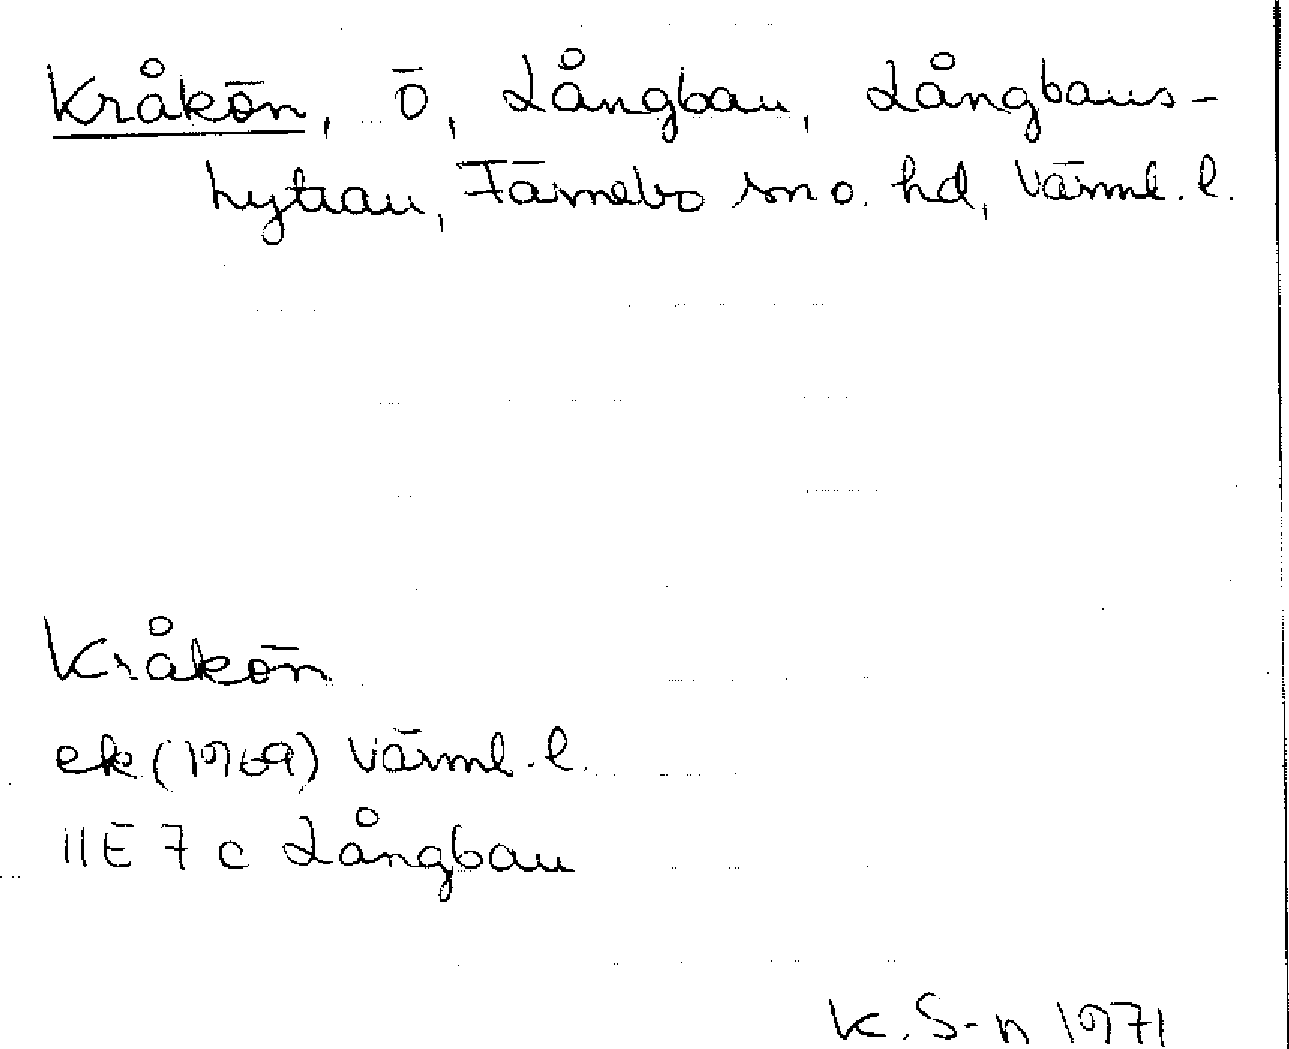 Kråkön, ö, Långban, Långbans-
hyttan, Färnebo sn o. hd, Värml. l.
Kråkön
ek (1969) Värml. l.
11E 7 c Långban
K. S-n 1971